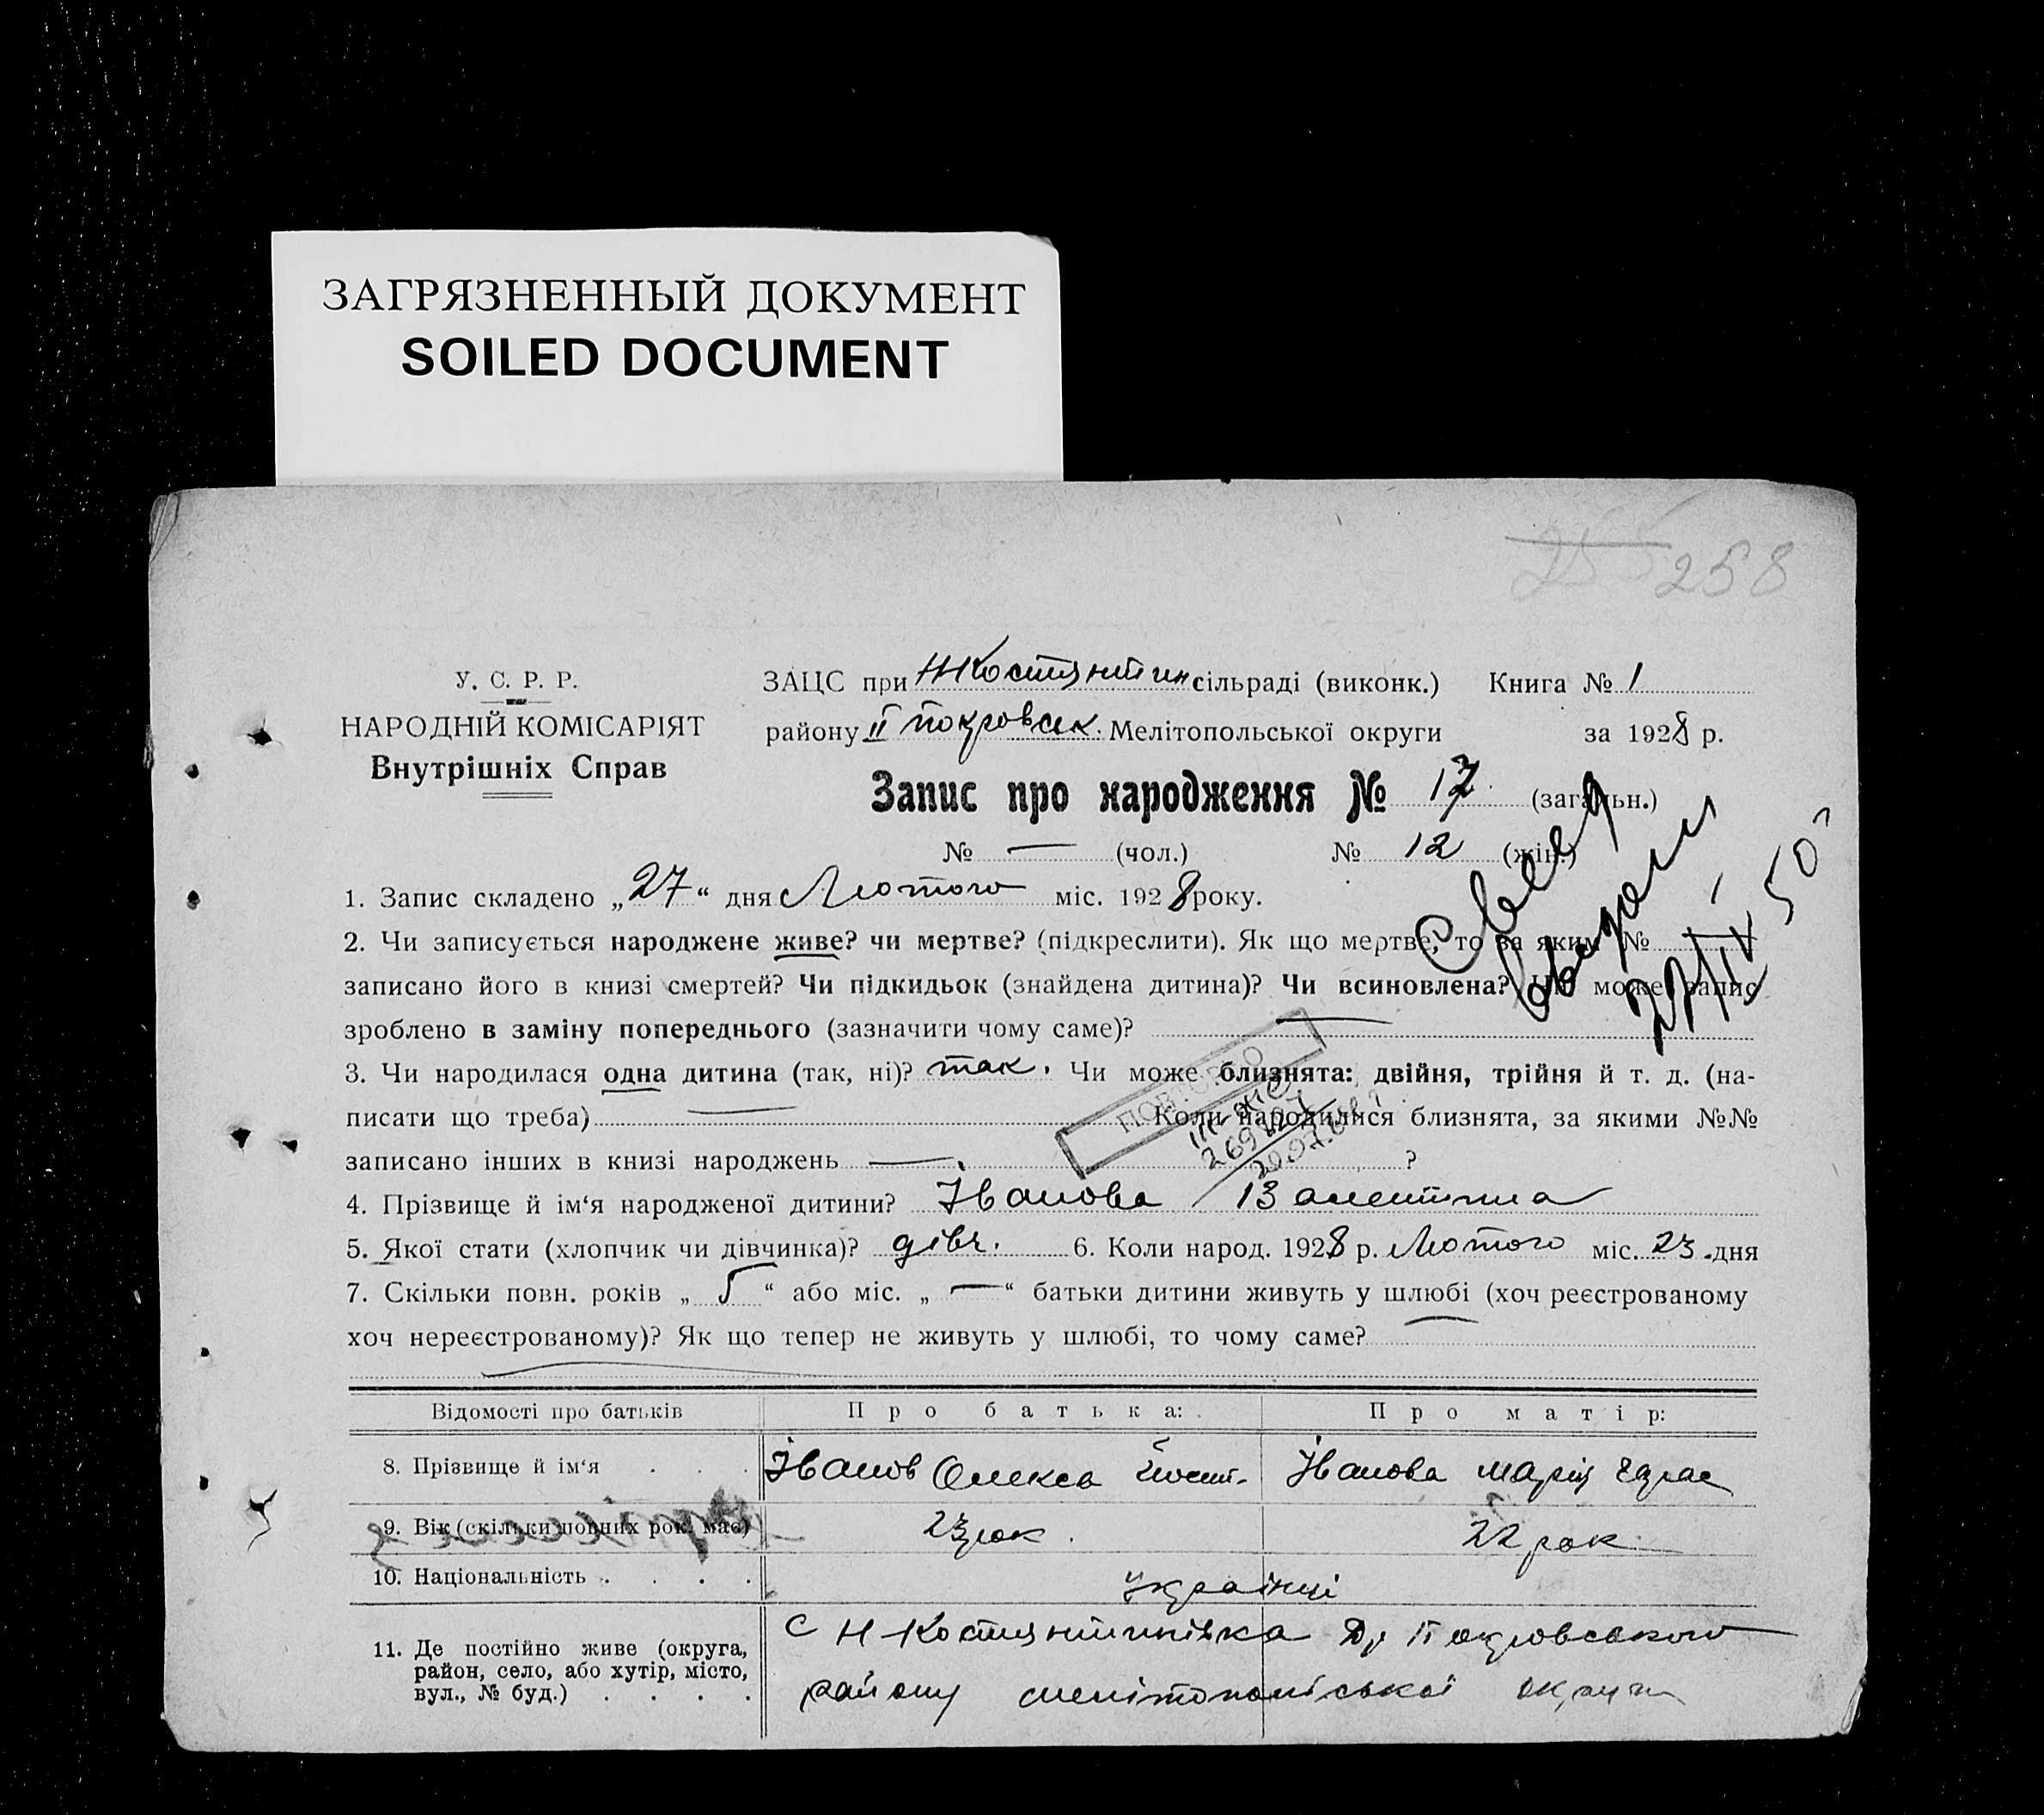 ЗАГРЯЗНЕННЫЙ ДОКУМЕНТ
SOILED DOCUMENT
258
У. С. Р. Р.
НАРОДНІЙ КОМІСАРІЯТ
Внутрішніх Справ
ЗАЦС при НКостянтин сільраді (виконк.) Книга № 1
району ІІ Покровськ. Мелітопольської округи за 1928 р.
Запис про народження № 17 (загальн.)
№ — (чол.) № 12 (жін.)
1. Запис складено „27“ дня Лютого міс. 1928 року.
2. Чи записується народжене живе? чи мертве? (підкреслити). Як що мертве, то за яким №
записано його в книзі смертей? Чи підкидьок (знайдена дитина)? Чи всиновлена? Чи може запис
зроблено в заміну попереднього (зазначити чому саме)? —
3. Чи народилася одна дитина (так, ні)? так. Чи може близнята: двійня, трійня й т. д. (на-
писати що треба) — Коли народилися близнята, за якими №№
записано інших в книзі народжень — ?
ПОВТОРНО
4. Прізвище й ім‘я народженої дитини? Іванова Валентина
5. Якої стати (хлопчик чи дівчинка)? дівч. 6. Коли народ. 1928 р. Лютого міс. 23 дня
7. Скільки повн. років „5“ або міс. „—“ батьки дитини живуть у шлюбі (хоч реєстрованому
хоч нереєстрованому)? Як що тепер не живуть у шлюбі, то чому саме?
Відомості про батьків Про батька: Про матір:
8. Прізвище й ім‘я . . . Іванов Олекса Іванова Марія
9. Вік (скільки повних рок. має) 23 рок. 22 рок.
10. Національність . . . . українці
11. Де постійно живе (округа, район, село, або хутір, місто, вул., № буд.) . . . . с Н Костянтинівка Др Покровського
району мелітопольської округи